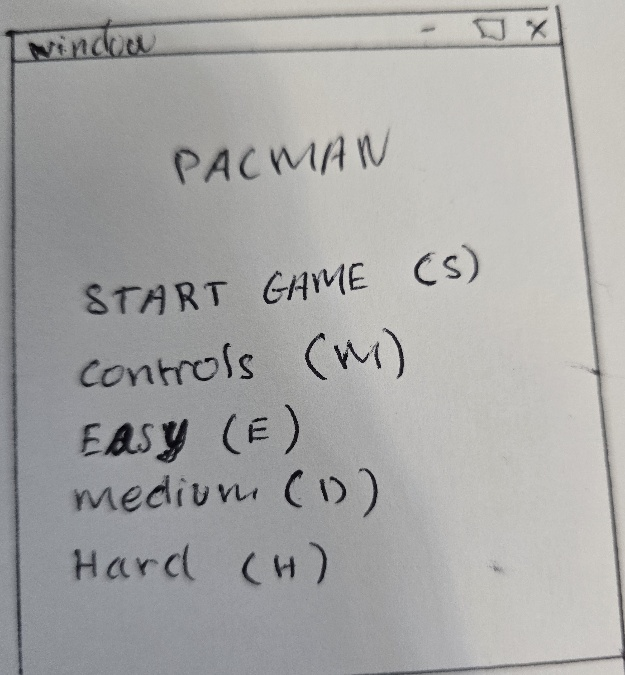 window - X
PACMAN
START GAME (S)
controls (M)
EASY (E)
medium (D)
Hard (H)